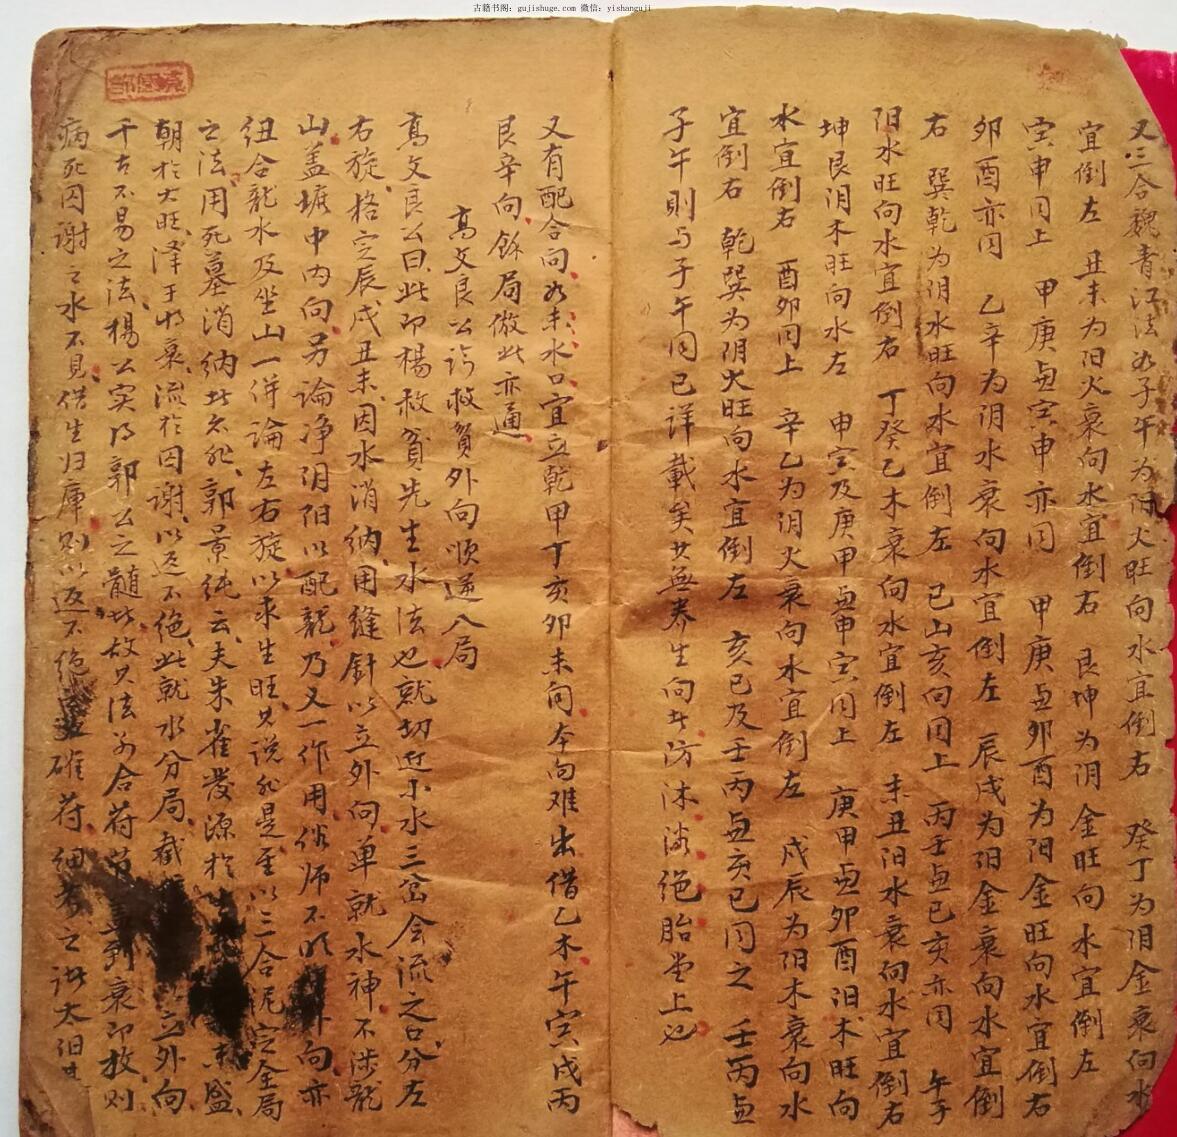 古籍书阁：gujishuge.com 微信：yishanguji
又三合魏青江法如子午为阳火旺向水宜倒右 癸丁为阴金衰向水
宜倒左 丑未为阳火衰向水宜倒右 艮坤为阴金旺向水宜倒左
寅申同上 甲庚与寅申亦同 甲庚与卯酉为阳金旺向水宜倒右
卯酉亦同 乙辛为阴水衰向水宜倒左 辰戌为阳金衰向水宜倒
右 巽乾为阴水旺向水宜倒左 巳山亥向同上 丙壬与巳亥亦同 午子
阳水旺向水宜倒右 丁癸乙木衰向水宜倒左 未丑阳水衰向水宜倒右
坤艮阴木旺向水左 申寅及庚甲与申寅同上 庚甲与卯酉阳木旺向
水宜倒右 酉卯同上 辛乙为阴火衰向水宜倒左 戌辰为阳木衰向水
宜倒右 乾巽为阴火旺向水宜倒左 亥巳及壬丙与亥巳同之 壬丙与
子午则与子午同已详载矣其无养生向者防沐浴绝胎堂上也
又有配合向如未水口宜立乾甲丁亥卯未向本向难出借乙木午寅戌丙
艮辛向余局仿此亦通
高文良公 救贫外向顺逆八局
高文良公曰此即杨救贫先生水法也就切近小水三岔会流之口分左
右旋格定辰戌丑未因水消纳用缝针以立外向单就水神不涉龙
山盖塘中内向另论净阴阳以配龙乃又一作用俗师不明外向亦
纽合龙水及坐山一并论左右旋以求生旺其说非是至以三合泥定全局
之法用死墓消纳此名非郭景纯云夫朱雀发源于生 盛
朝于大旺泽于将衰流于囚谢以返不绝此就水分局截 立外向
千古不易之法杨公实得郭公之髓此故其法若合符节 到衰即救则
病死囚谢之水不见借生归库则以返不绝 碓荷细考之